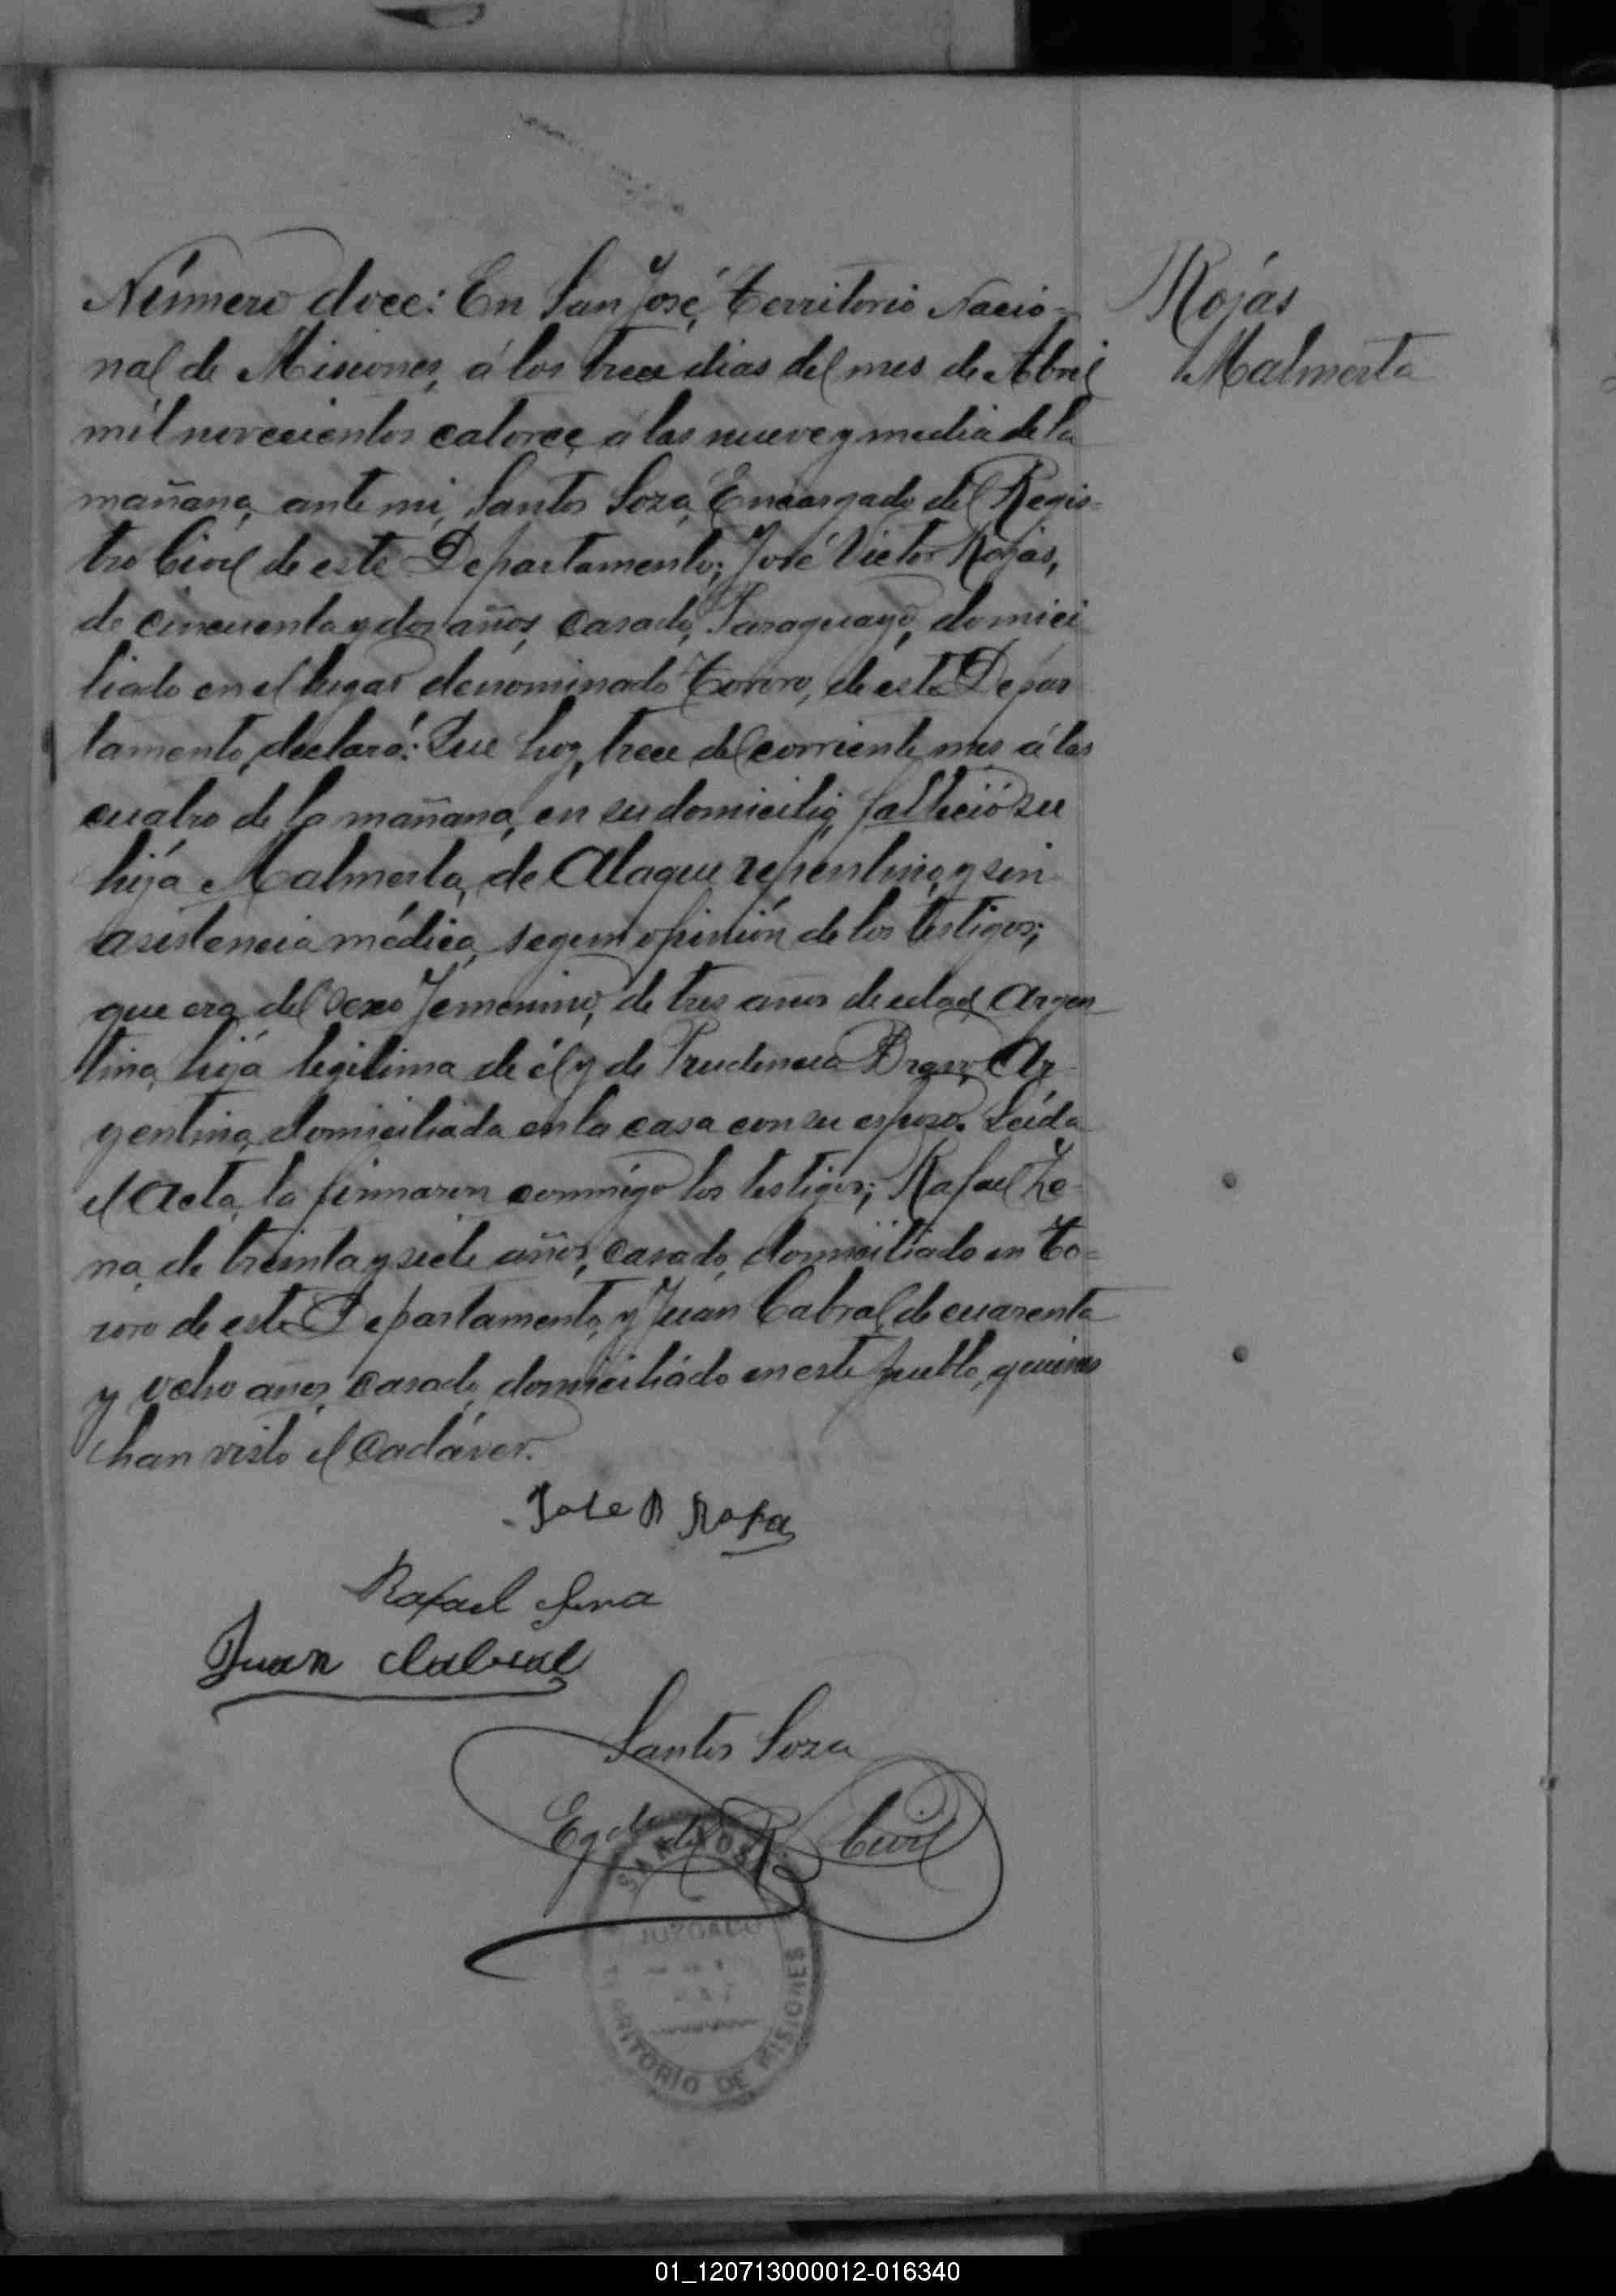 Número doce: En San José, Territorio Nacio-
nal de Misiones, á los trece dias del mes de Abril
mil novecientos catorce, á las nueve y media de la
mañana, ante mi, Santos Soza, Encargado del Regis-
tro Civil de este Departamento; José Victor Rojás,
de cincuenta y dos años, casado, Paraguayo, domici
liado en el lugar denominado Tororo, de este Depar
tamento, declaró: Que hoy, trece del corriente mes á las
cuatro de la mañana, en su domicilio, falleció su
hijá Malmerta, de Ataque repentino, y sin
asistencia médica, segun opinión de los testigos;
que era del Sexo Femenino, de tres años de edad, Argen
tina, hijá legitima de él y de Prudencia Bravo, Ar-
gentina, domiciliada en la casa con su esposo. Leída
el Acta, la firmaron conmigo los testigos; Rafael Ze-
na, de treinta y siete años, casado, domiciliado en To=
roro de este Departamento, y Juan Cabral, de cuarenta
y ocho años, casado, domiciliádo en este pueblo, quienes
han visto el Cadáver.
Rojás
Malmerta
Jose R Roja
Rafael Sena
Juan Cabral
Santos Soza
Egdo del R. Civil
SAN JOSÉ
JUZGADO
TERRITORIO DE MISIONES
01_120713000012-016340